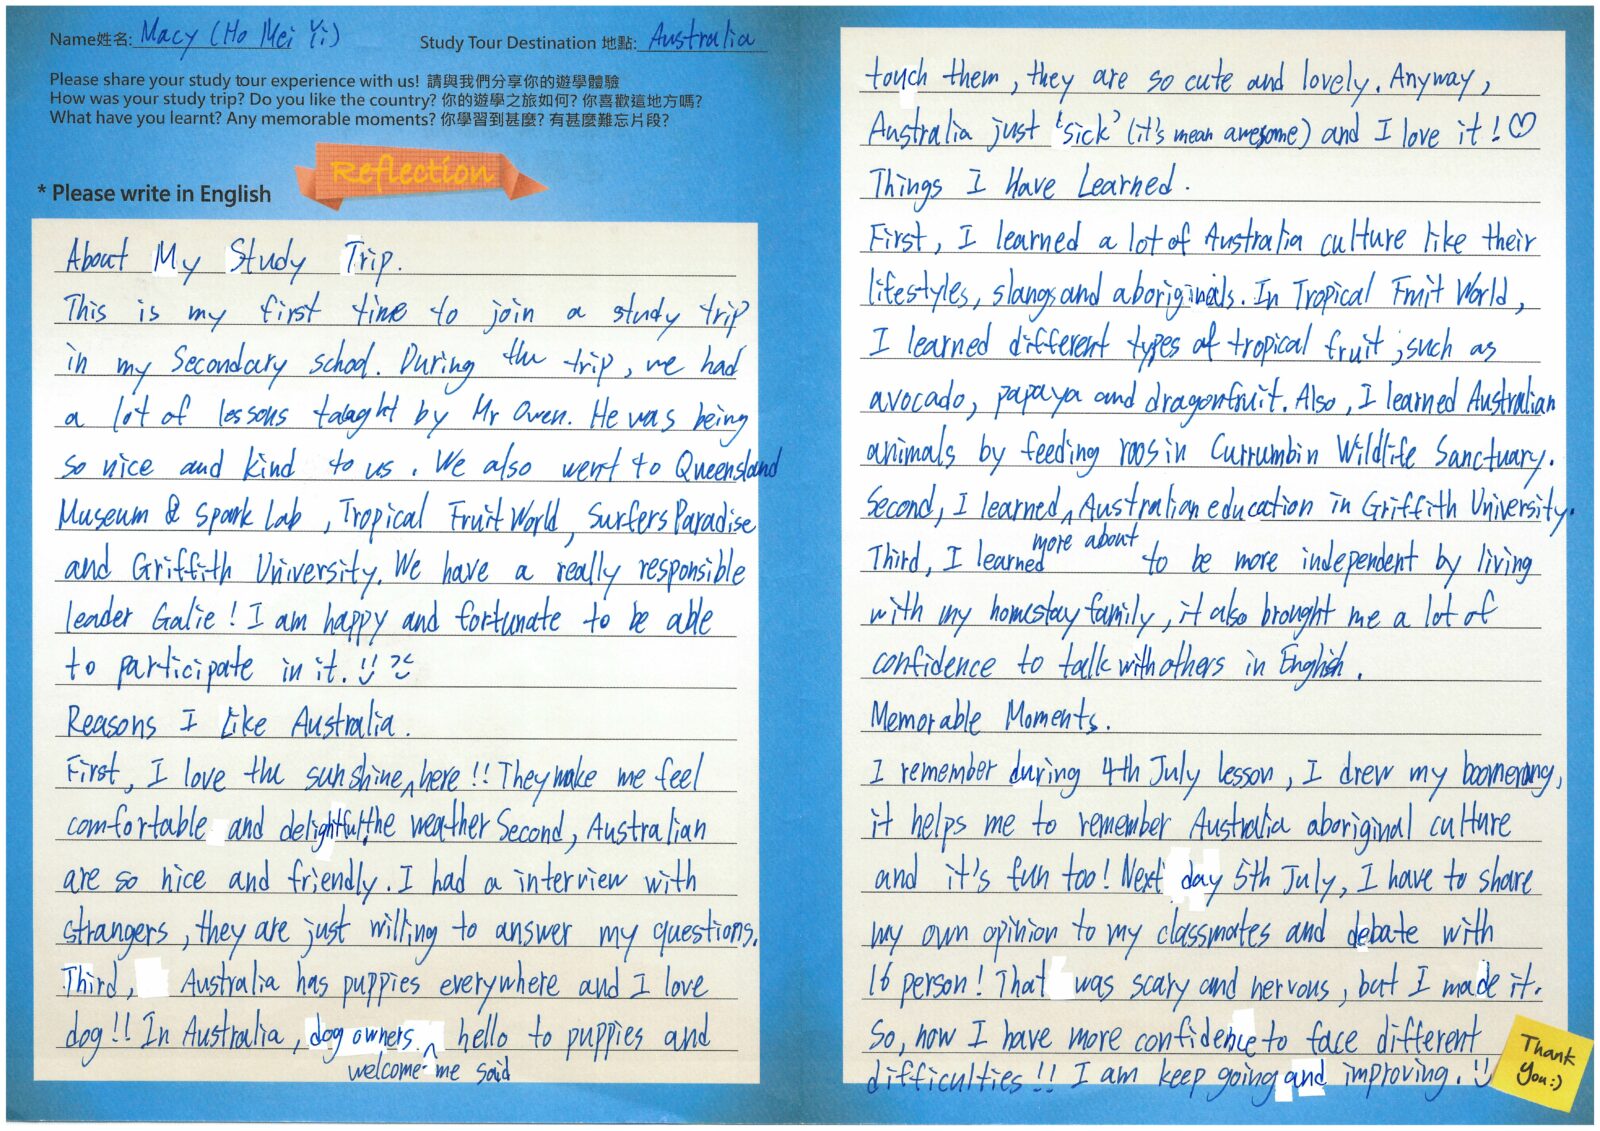 Name姓名: Macy (Ho Mei Yi)
Study Tour Destination 地點: Australia
Please share your study tour experience with us! 請與我們分享你的遊學體驗
How was your study trip? Do you like the country? 你的遊學之旅如何? 你喜歡這地方嗎?
What have you learnt? Any memorable moments? 你學習到甚麼? 有甚麼難忘片段?
Reflection
* Please write in English
About My Study Trip.
This is my first time to join a study trip
in my Secondary school. During the trip, we had
a lot of lessons taught by Mr Owen. He was being
so nice and kind to us. We also went to Queensland
Museum & Spark Lab, Tropical Fruit World, Surfers Paradise
and Griffith University. We have a really responsible
leader Galie! I am happy and fortunate to be able
to participate in it.
Reasons I Like Australia.
First, I love the sunshine ^ here!! They make me feel
comfortable and delightful! the weather Second, Australian
are so nice and friendly. I had a interview with
strangers, they are just willing to answer my questions.
Third, Australia has puppies everywhere and I love
dog!! In Australia, dog owners ^ hello to puppies and
welcome me said
touch them, they are so cute and lovely. Anyway,
Australia just 'sick' (it's mean awesome) and I love it! ♡
Things I Have Learned.
First, I learned a lot of Australia culture like their
lifestyles, slangs and aboriginals. In Tropical Fruit World,
I learned different types of tropical fruit, such as
avocado, papaya and dragonfruit. Also, I learned Australian
animals by feeding roos in Currumbin Wildlife Sanctuary.
Second, I learned ^ Australian education in Griffith University.
more about
Third, I learned to be more independent by living
with my homestay family, it also brought me a lot of
confidence to talk with others in English.
Memorable Moments.
I remember during 4th July lesson, I drew my boomerang,
it helps me to remember Australia aboriginal culture
and it's fun too! Next day 5th July, I have to share
my own opinion to my classmates and debate with
16 person! That was scary and nervous, but I made it.
So, now I have more confidence to face different
difficulties!! I am keep going and improving.
Thank
You:)